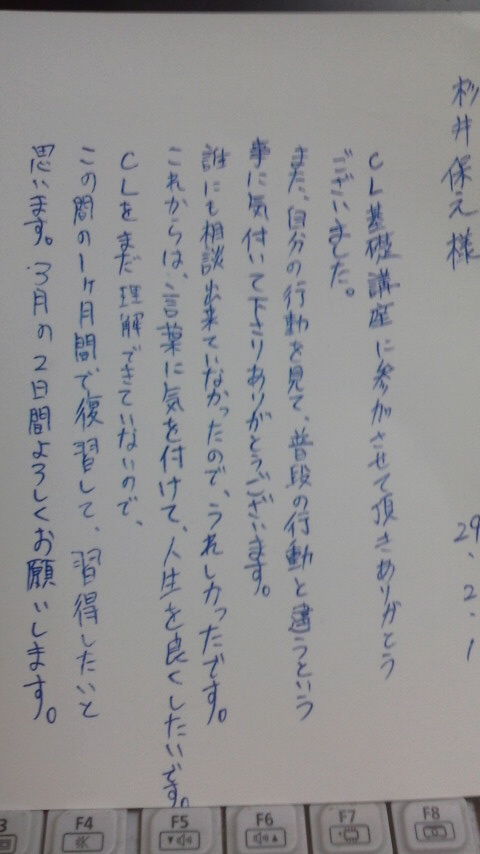 杉井保之様
29.2.1
CL基礎講座に参加させて頂きありがとう
ございました。
また、自分の行動を見て、普段の行動と違うという
事に気付いて下さりありがとうございます。
誰にも相談出来ていなかったので、うれしかったです。
これからは、言葉に気を付けて、人生を良くしたいです。
CLをまだ理解できていないので、
この間の1ヶ月間で復習して、習得したいと
思います。3月の2日間よろしくお願いします。
3
F4
F5
F6
F7
F8